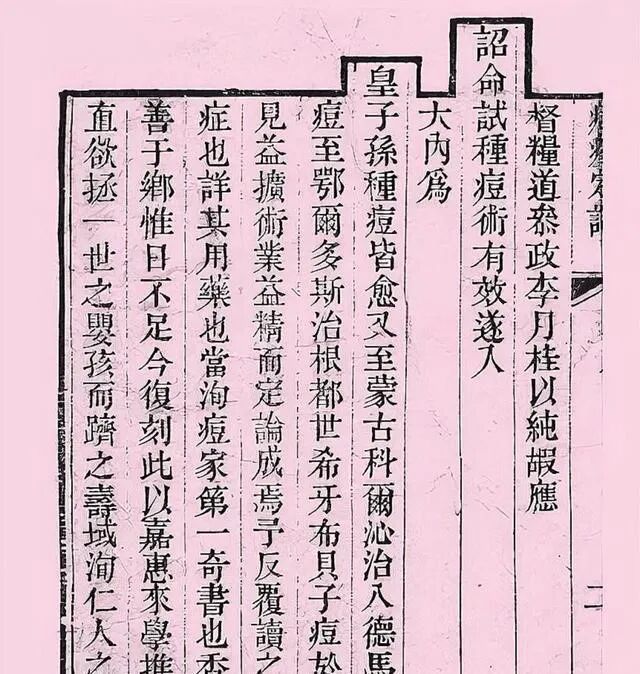 二
督糧道叅政李月桂以純嘏應
詔命試種痘術有效遂入
大內爲
皇子孫種痘皆愈又至蒙古科爾沁治八德馬
痘至鄂爾多斯治根都世希牙布貝子痘於
見益擴術業益精而定論成焉予反覆讀之
症也詳其用藥也當洵痘家第一奇書也
善于鄉惟日不足今復刻此以嘉惠來學推
直欲拯一世之嬰孩而躋之壽域洵仁人之